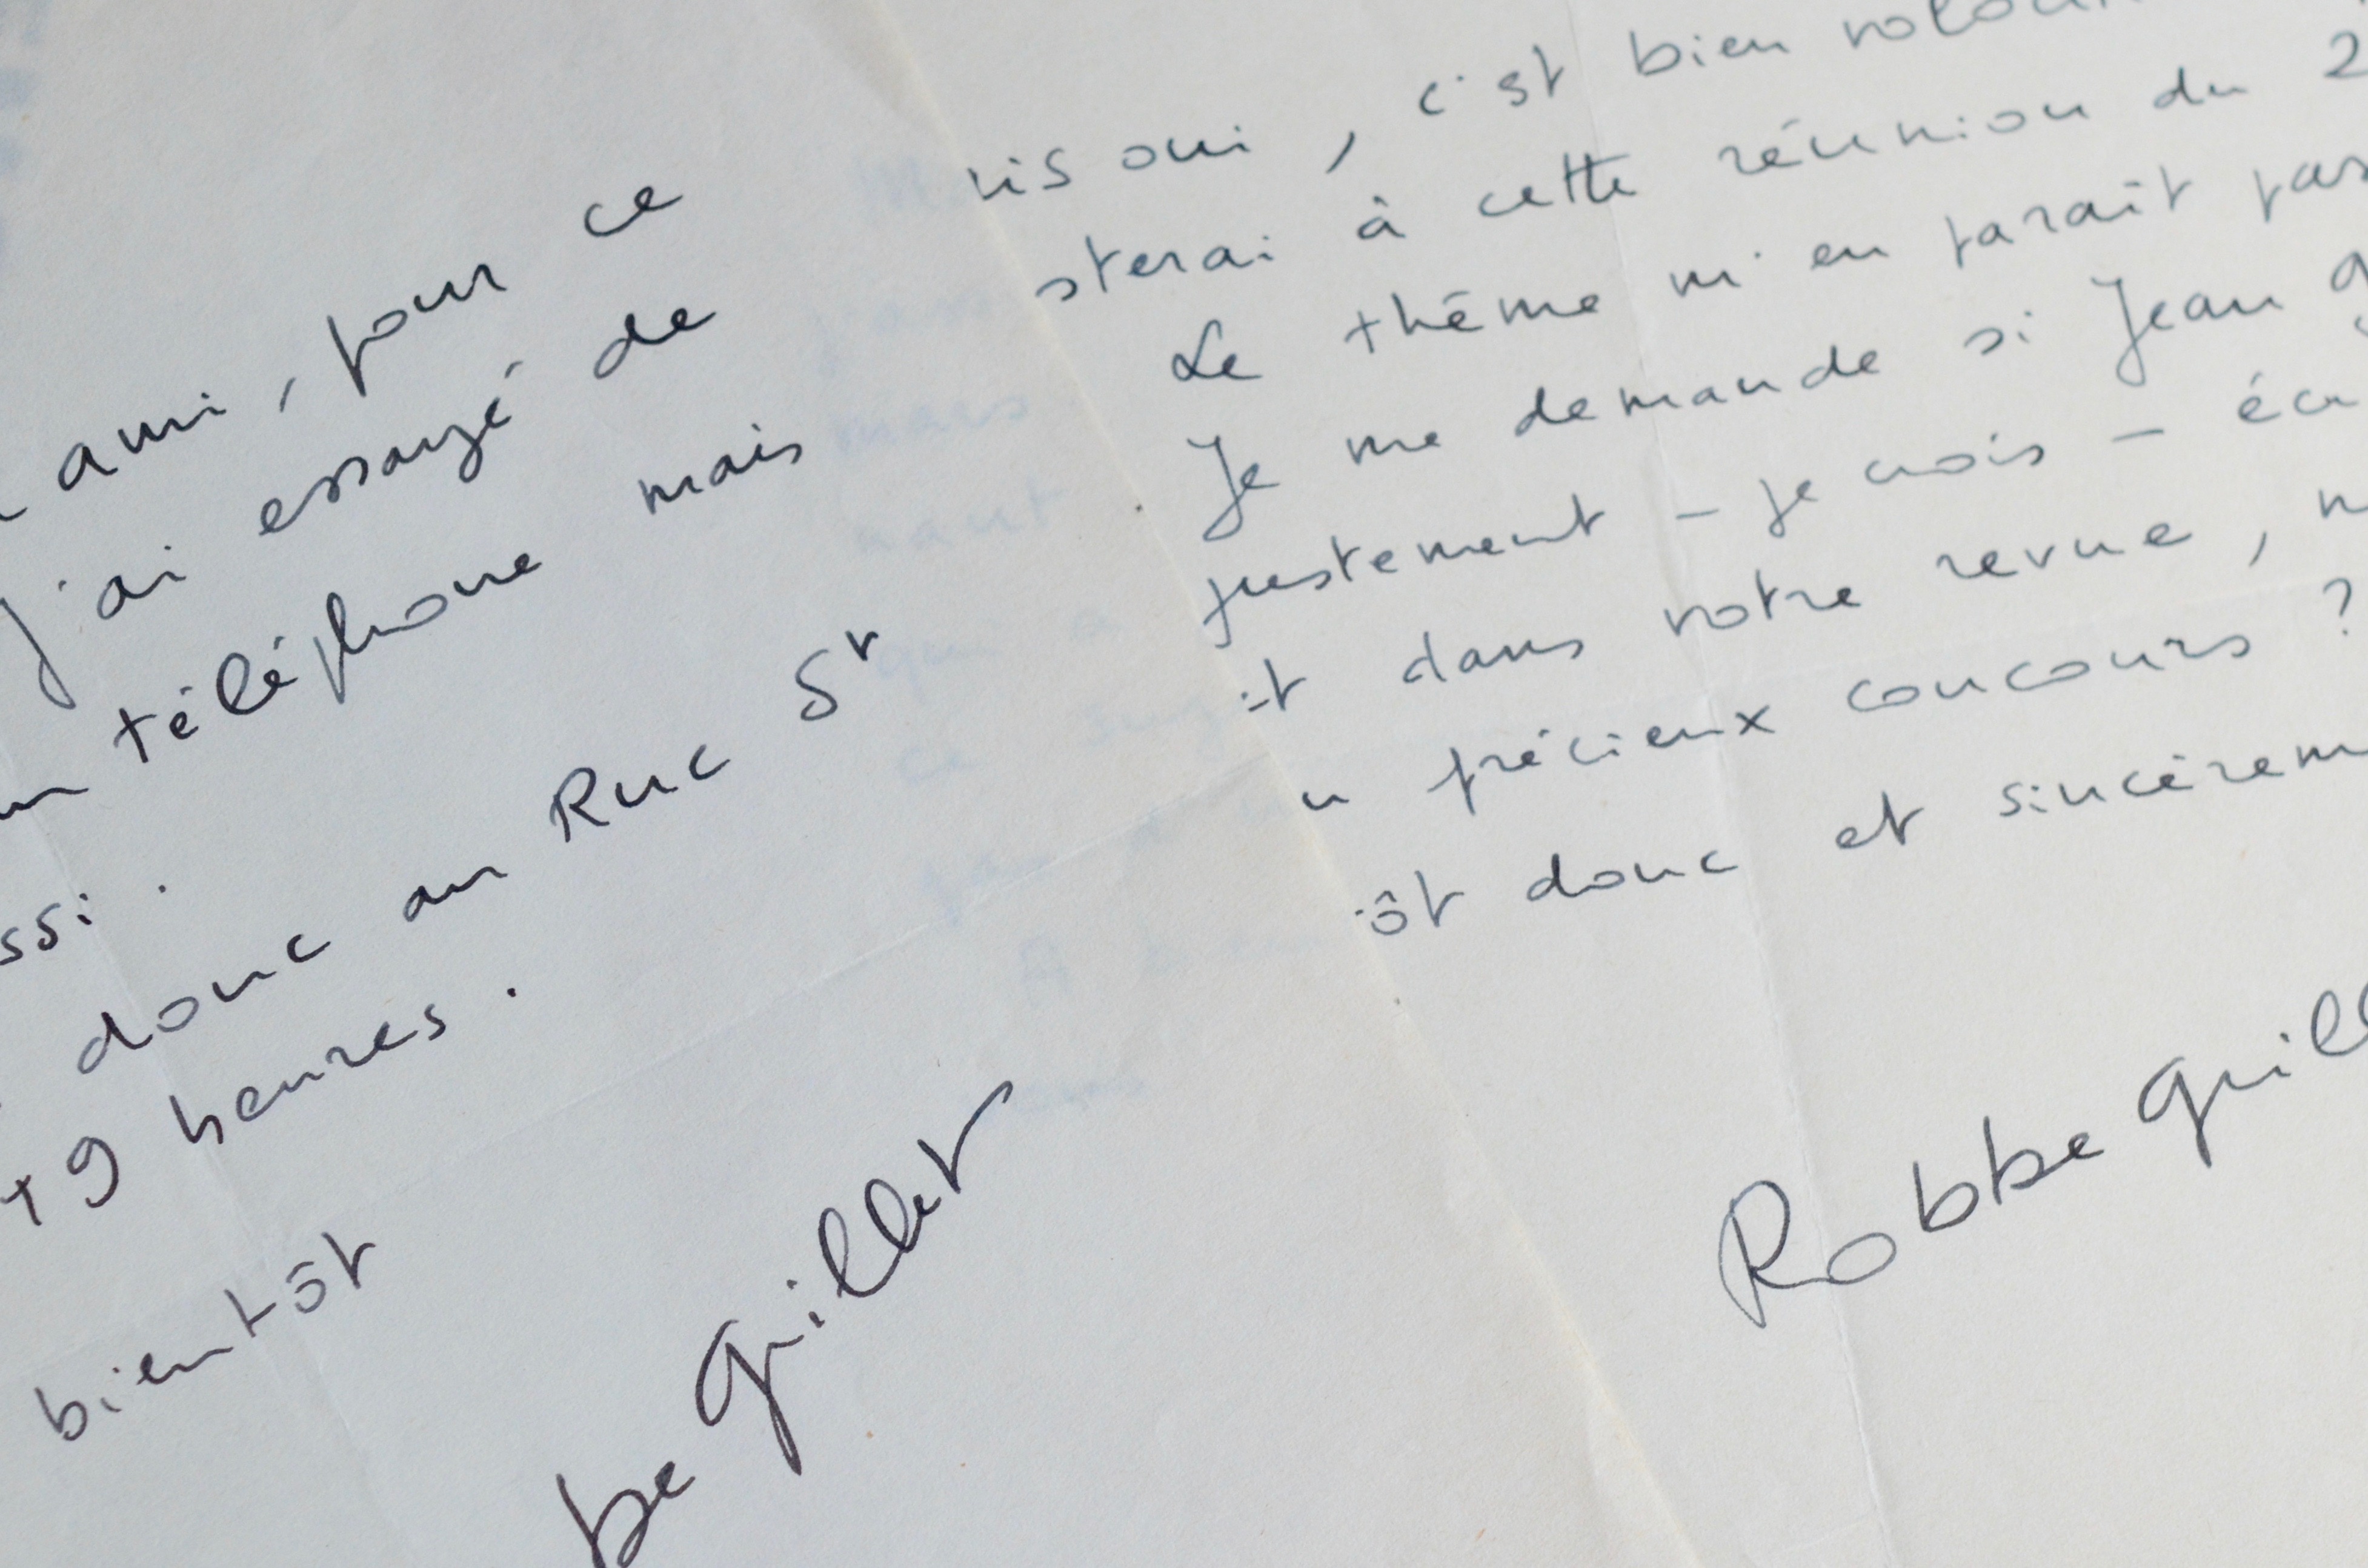 ami, pour ce
j'ai essayé de
téléphone mais
ssi.
donc au Ruc St
19 heures.
bientôt
be Grillet
Mais oui, c'est bien
j'assisterai à cette réunion du 2
mars. Le thème m'en paraît pas
nant. Je me demande si Jean
qui a justement – je crois –
ce sujet dans votre revue,
précieux concours ?
A bientôt donc et sincèrem
Robbe Grill